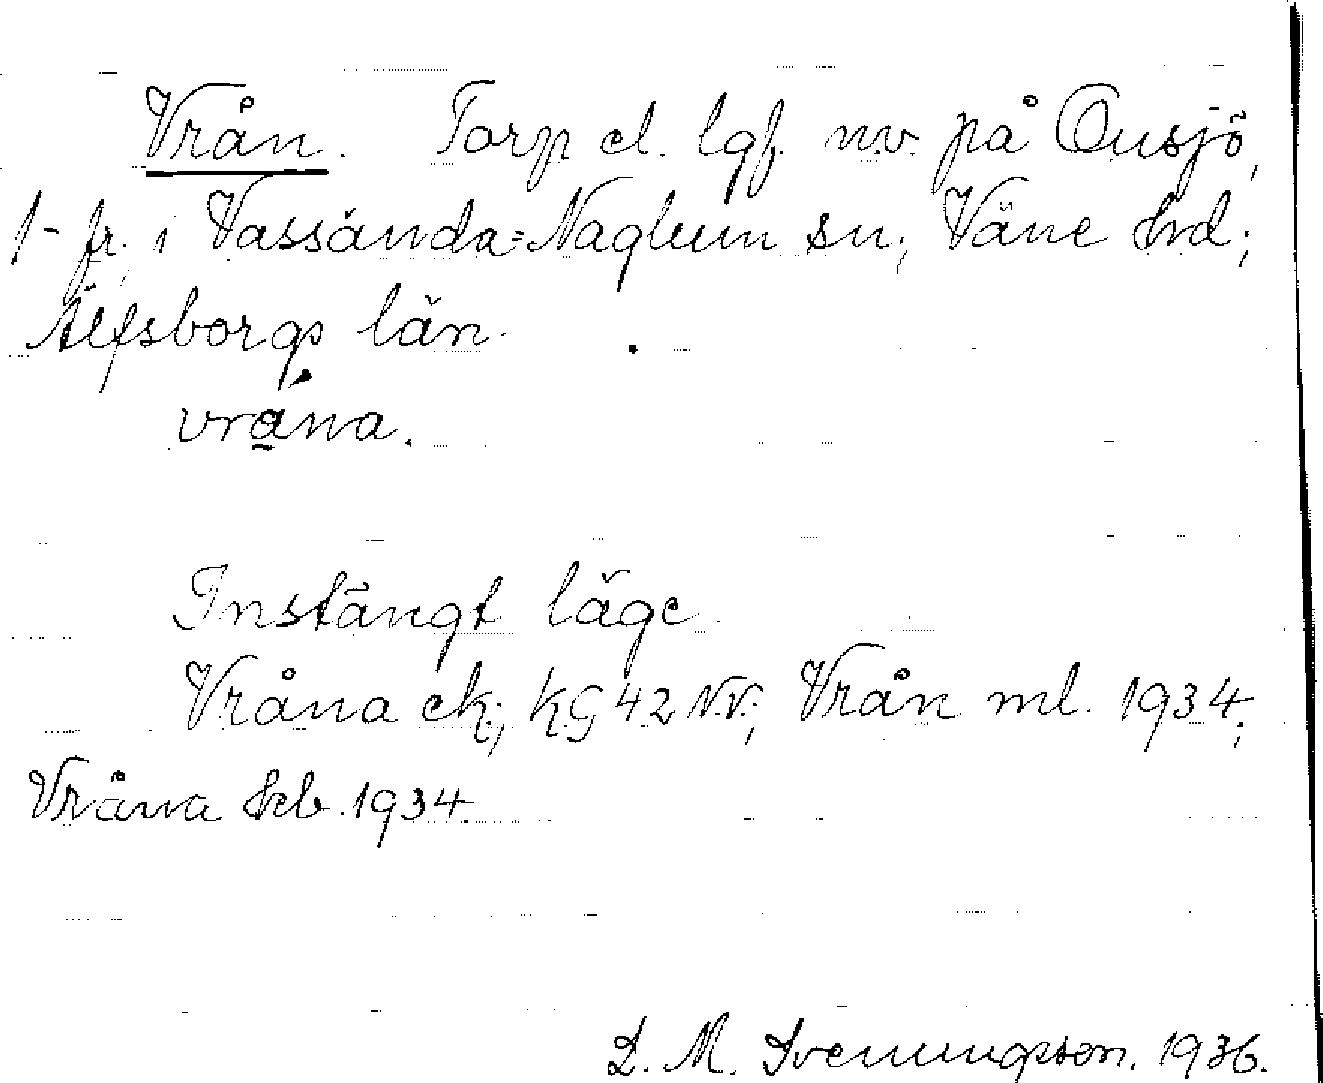 Vrån. Torp el. lgf. n.v. på Öusjö,
1-fr. i Vassända=Naglum sn; Väne hrd;
Älfsborgs län.
vråna.
Instängt läge
Vråna ek; KG 42 N.V.; Vrån ml. 1934;
Vråna kb. 1934.
D. M. Svenungsson. 1936.